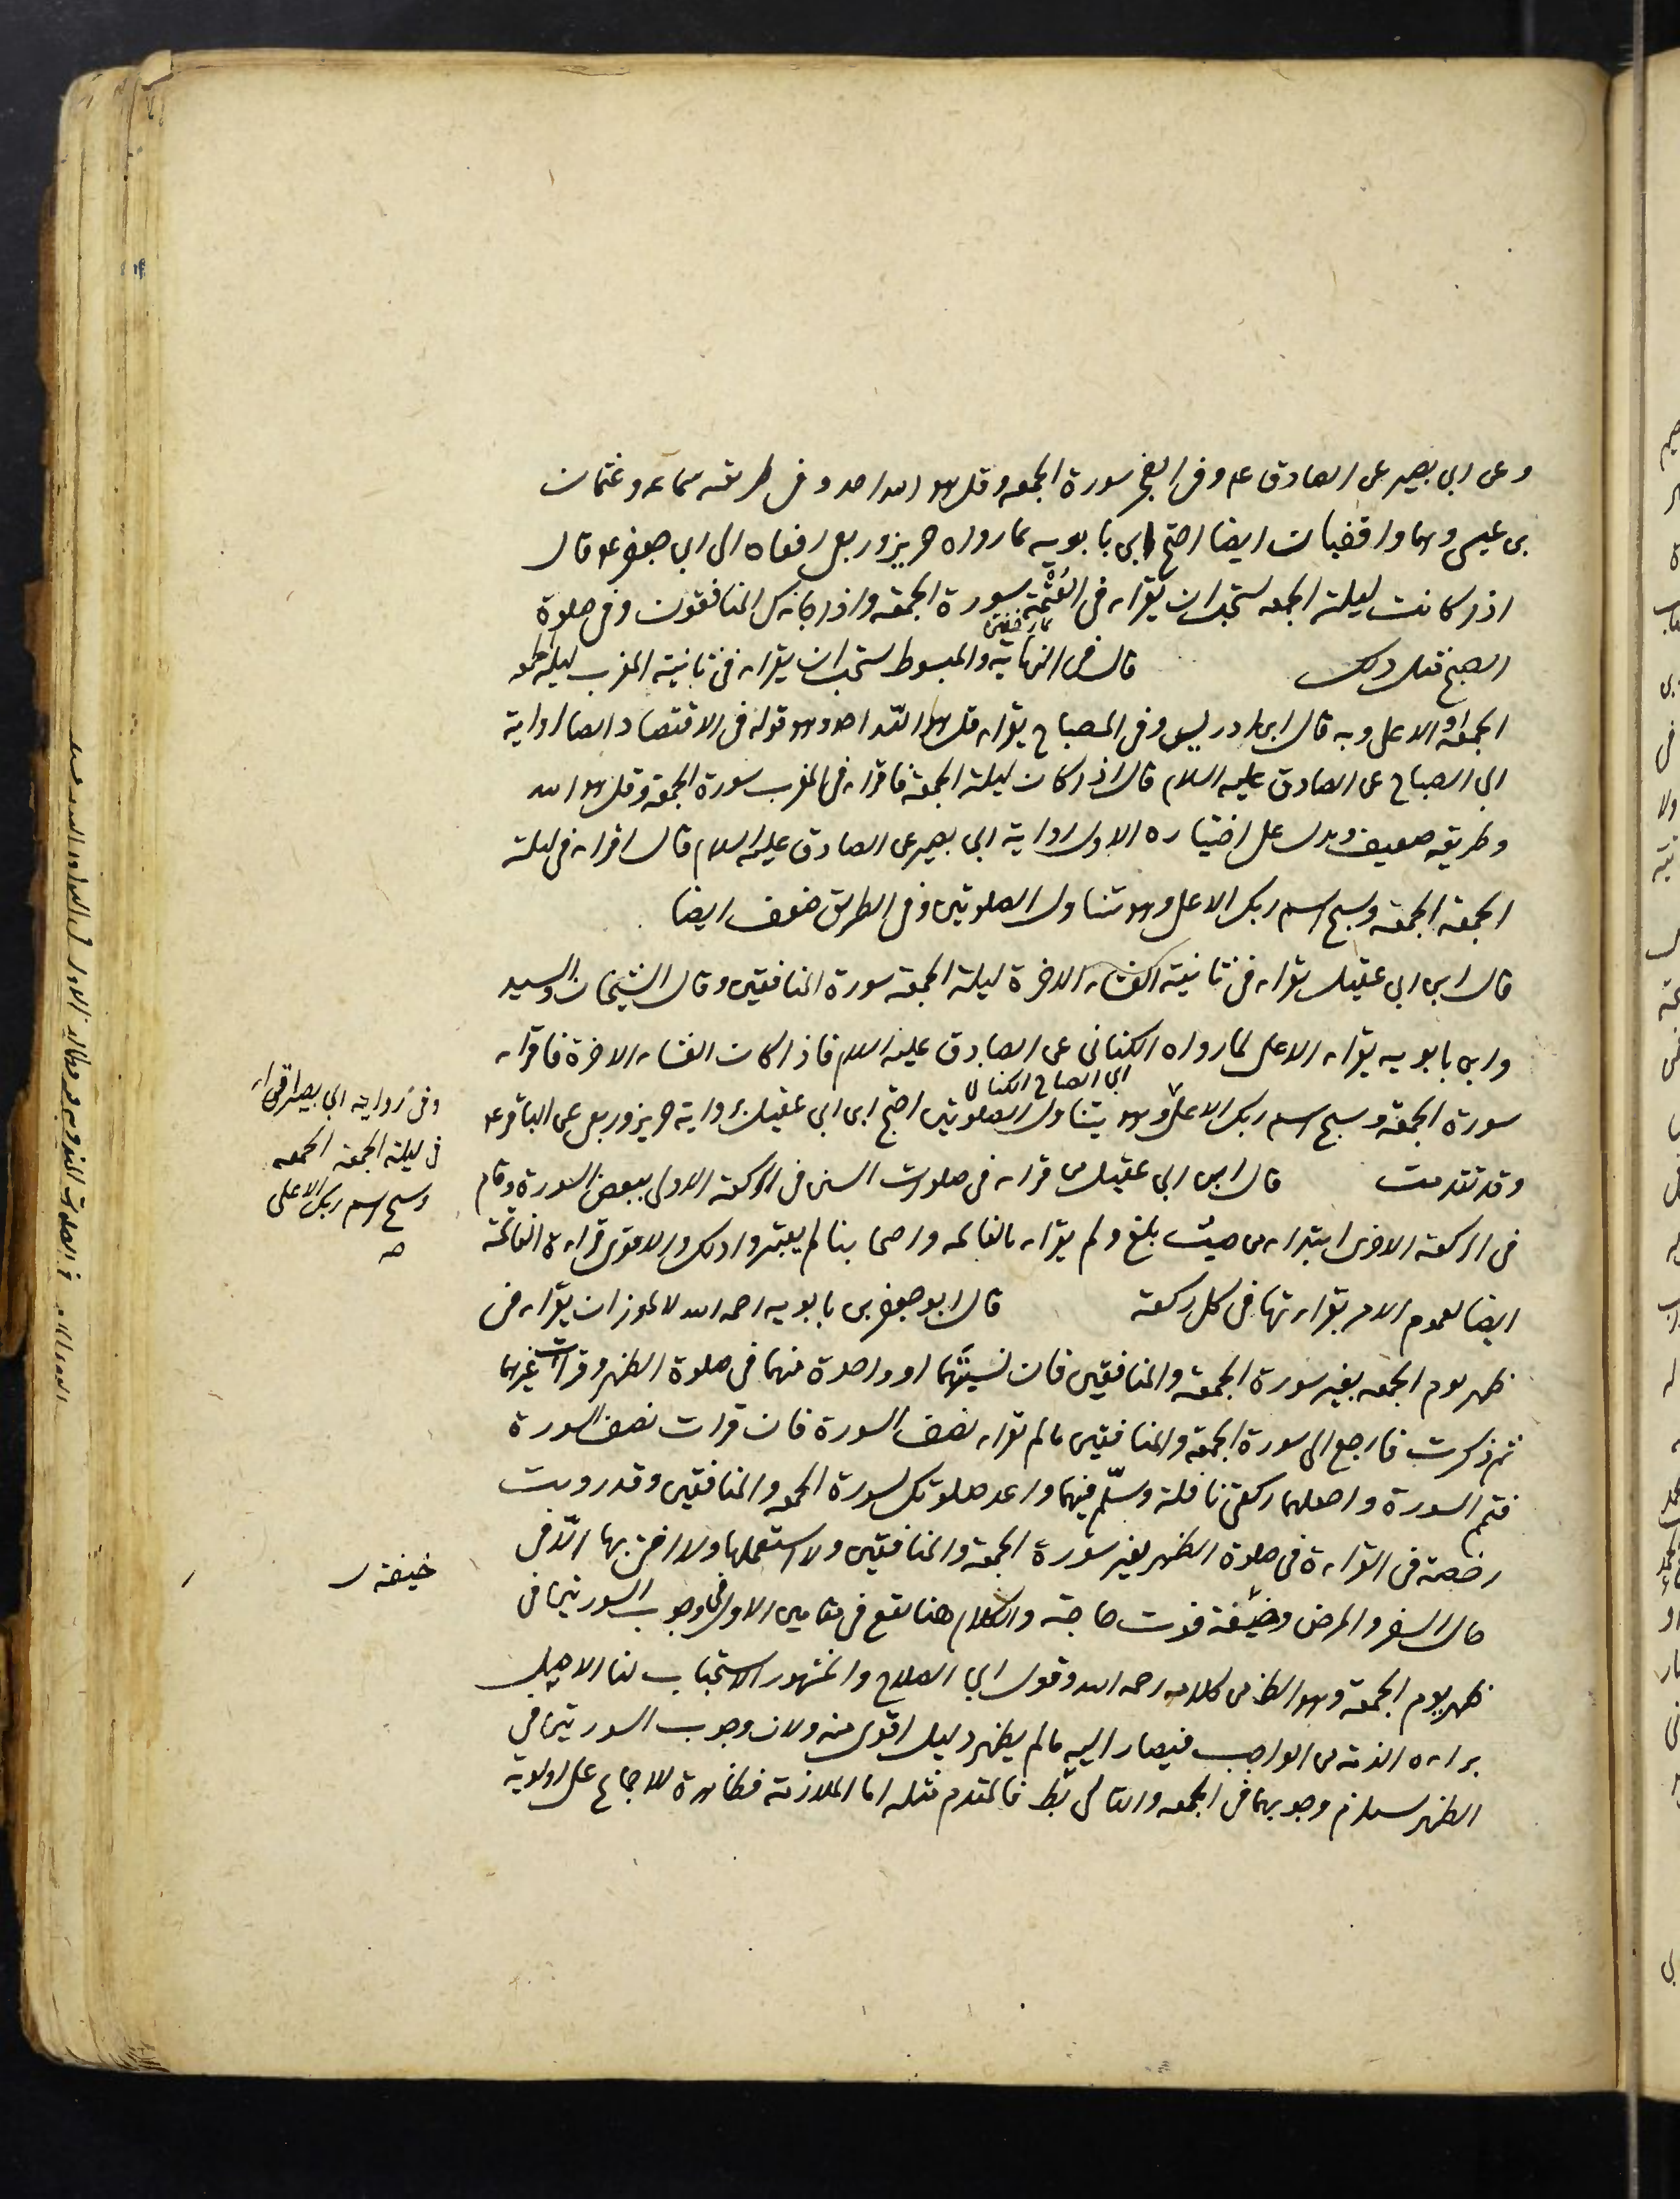 وعن ابي بصير عن الصادق ع م وفي الفجر سورة الجمعه وقل هو الله احد وفي طريقه سماعه وعثمان
بن عيسى وهما واقفيان ايضا احتج ابن بابويه بما رواه حريز وربعي رفعاه الى ابي جعفر ع م قال
اذا كانت ليلة الجمعه يستحب ان يقراء في العتمة سورة الجمعه واذا جاءك المنافقون وفي صلوة
الصبح مثل ذلك قال في النهاية والمبسوط يستحب ان يقراء في ثانية المغرب ليلة
الجمعة الاعلى وبه قال ابن ادريس وفي المصباح يقراء قل هو الله احد وهو قوله في الاقتصاد لنا رواية
ابي الصباح عن الصادق عليه السلام قال اذا كان ليلة الجمعة فاقراء في المغرب سورة الجمعة وقل هو الله
وطريقه ضعيف ويدل على اختياره الاول رواية ابي بصير عن الصادق عليه السلام قال اقراء في ليلة
الجمعة الجمعة وسبح اسم ربك الاعلى وهو يتناول الصلوتين وفي الطريق ضعف ايضا
قال ابن ابي عقيل يقراء في ثانية العشاء الاخرة ليلة الجمعة سورة المنافقين وقال الشيخان والسيد
وابن بابويه يقراء الاعلى لما رواه الكناني عن الصادق عليه السلام فاذا كان العشاء الاخرة فاقراء
ابي الصباح الكناني
سورة الجمعة وسبح اسم ربك الاعلى وهو يتناول الصلوتين احتج ابن ابي عقيل برواية حريز وربعي عن الباقر ع م
وقد تقدمت قال ابن ابي عقيل من قراء في صلوات السنن في الركعة الاولى ببعض السورة وقام
في الركعة الاخرى ابتداء من حيث بلغ ولم يقراء بالفاتحه واصحابنا لم يعتبروا ذلك والاقوى قراءة الفاتحة
ايضا لعموم الامر بقراءتها في كل ركعة قال ابو جعفر بن بابويه رحمه الله لا يجوز ان يقراء في
ظهر يوم الجمعه بغير سورة الجمعة والمنافقين فان نسيتهما او واحدة منهما في صلوة الظهر وقرات غيرهما
ثم ذكرت فارجع الى سورة الجمعة والمنافقين ما لم تقراء نصف السورة فان قرات نصف السورة
فتمم السورة واجعلهما ركعتي نافلة وسلّم فيهما واعد صلوتك بسورة الجمعه والمنافقين وقد رويت
رخصة في القراءة في صلوة الظهر بغير سورة الجمعة والمنافقين ولا استعملها ولا افتي بها الا في
حال السفر والمرض وخيفة فوت حاجة والكلام هنا يقع في مقامين الاول في وجوب السورتين في
ظهر يوم الجمعة وهو الظاهر من كلامه رحمه الله وقول ابي الصلاح والمشهور الاستحباب لنا الاصل
براءة الذمة من الواجب فيصار اليه ما لم يظهر دليل اقوى منه ولان وجوب السورتين في
الظهر يستلزم وجوبهما في الجمعه والتالي بط فالمقدم مثله اما الملازمة فظاهرة للاجماع على اولوية
وفي رواية ابي بصير اقراء
في ليلة الجمعة الجمعه
وسبح اسم ربك الاعلى
صح
خيفة